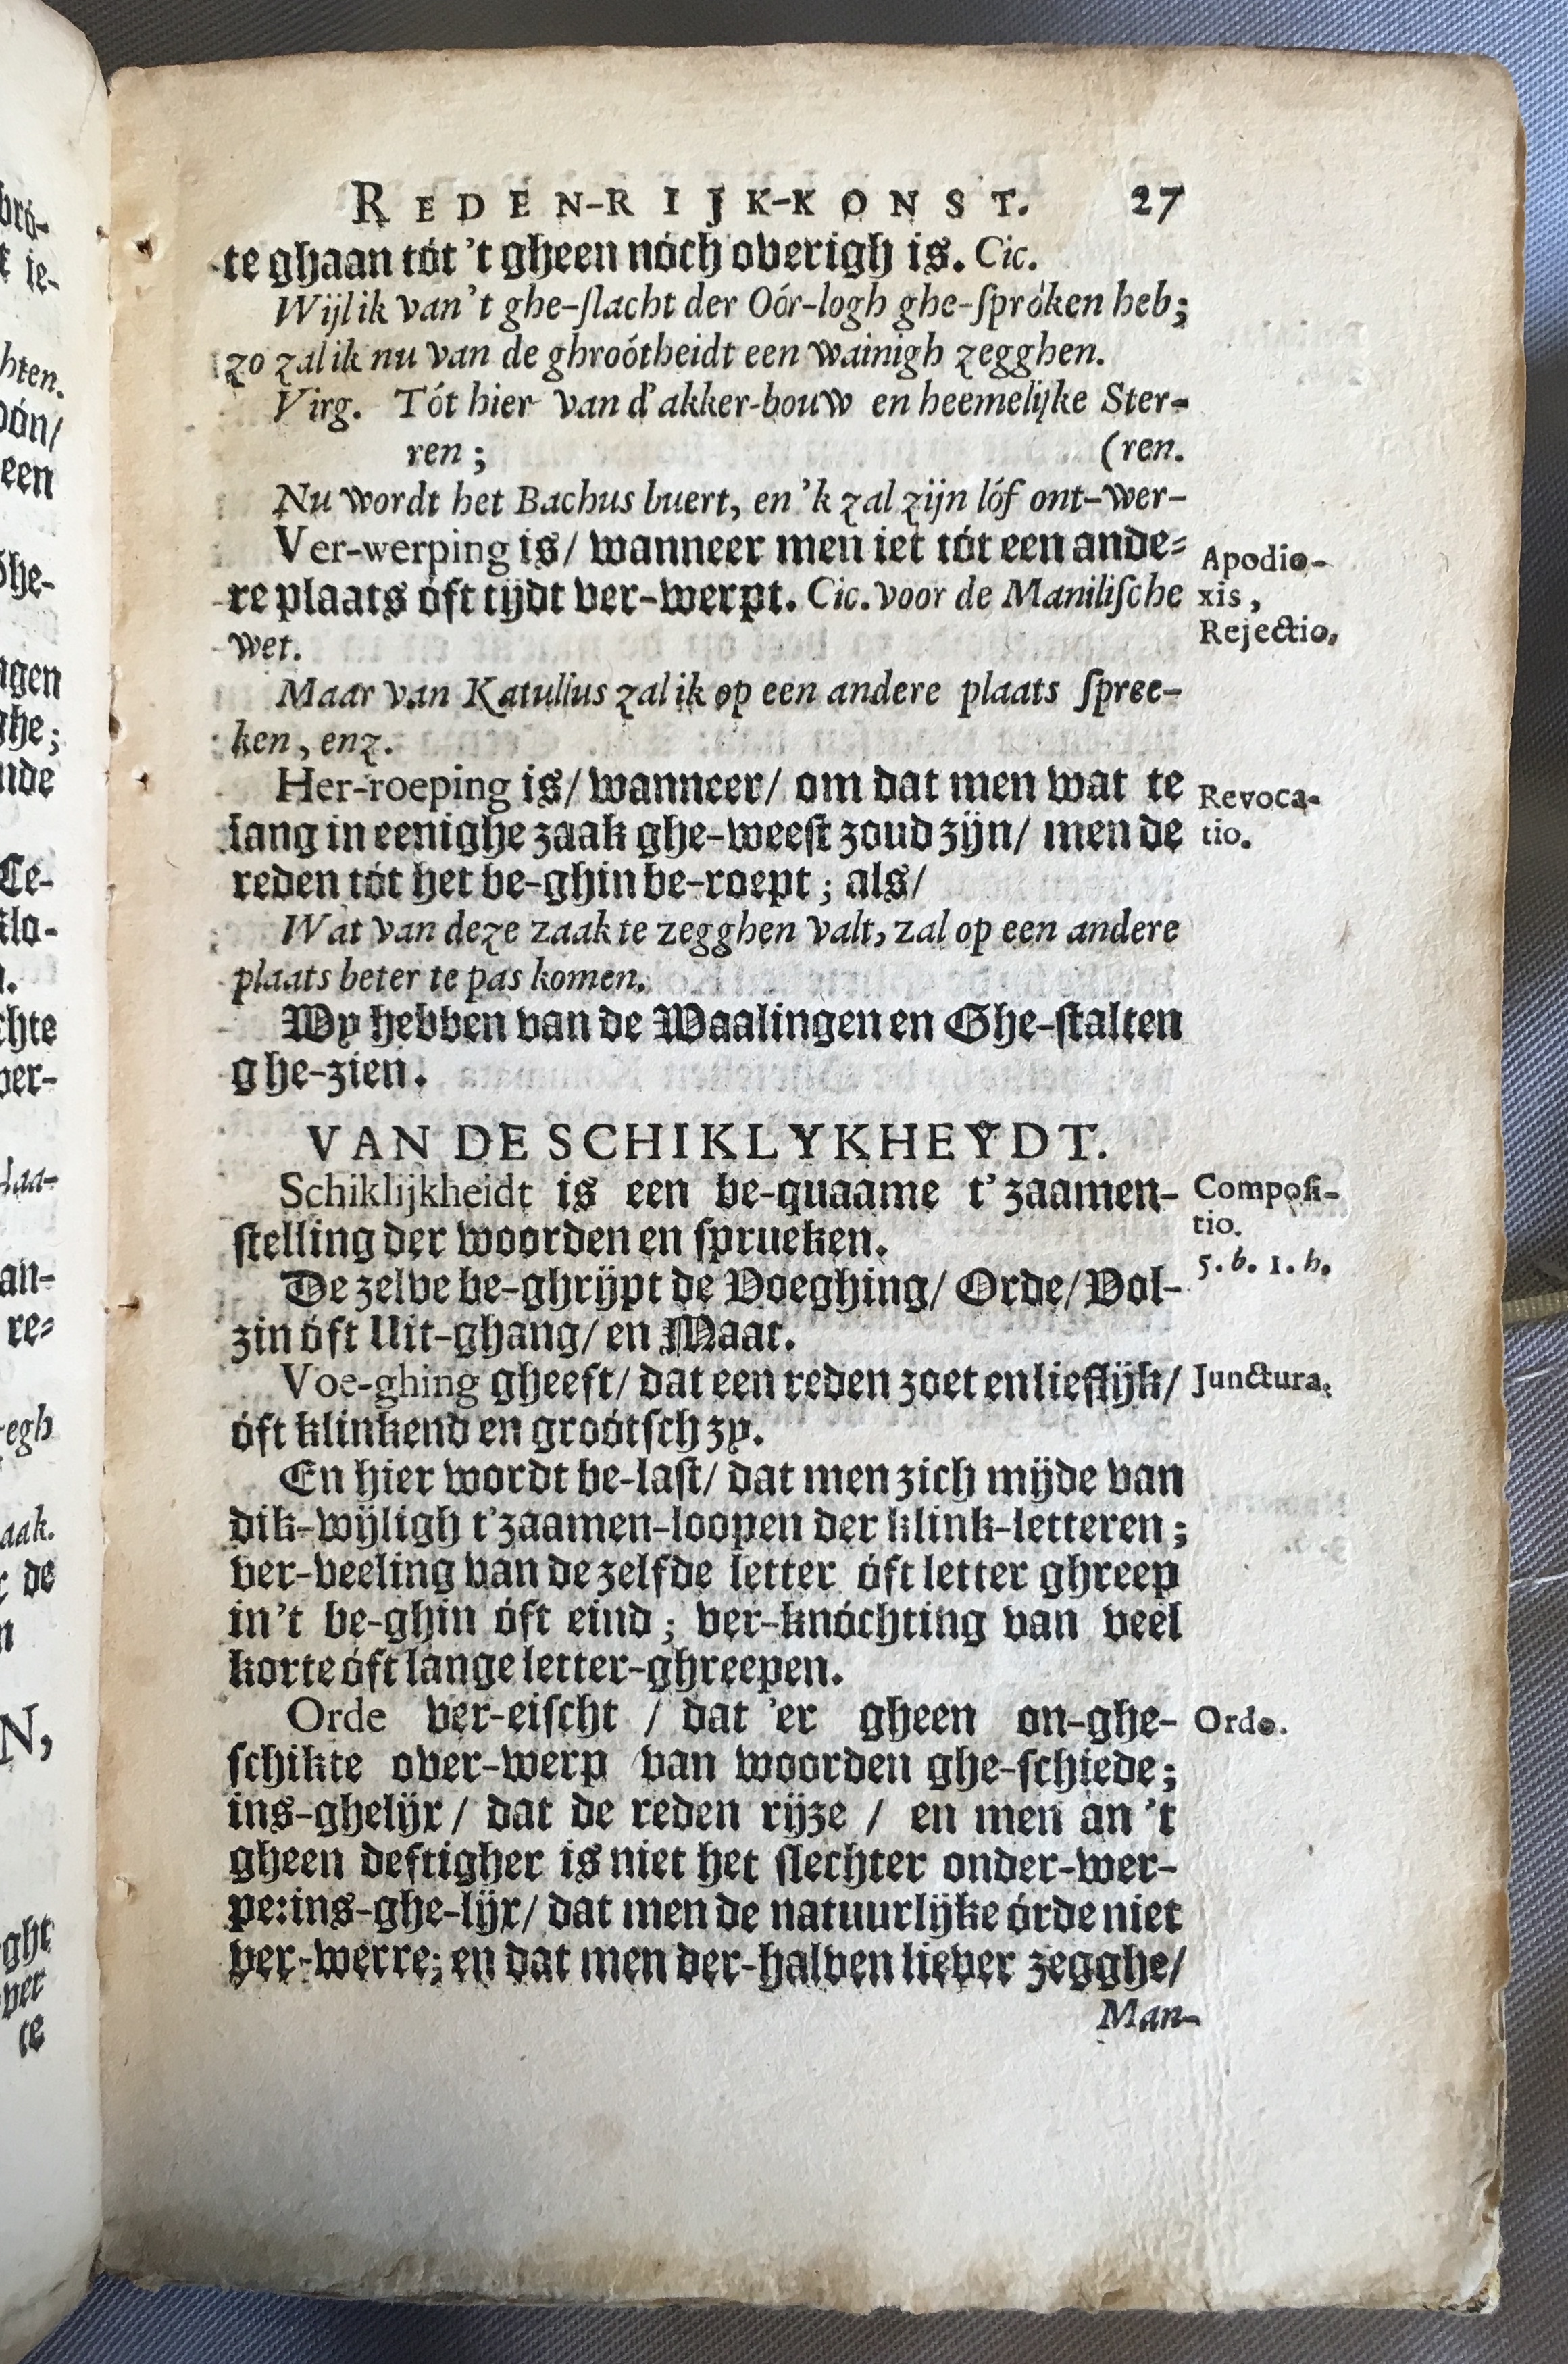 REDEN-RIJK-KONST. 27
te ghaan tót 't gheen nóch overigh is. Cic.
Wijl ik van 't ghe-ſlacht der Oór-logh ghe-ſpróken heb;
zo zal ik nu van de ghroótheidt een wainigh zegghen.
Virg. Tót hier van d'akker-bouw en heemelijke Ster-
ren; (ren.
Nu wordt het Bachus buert, en 'k zal zijn lóf ont-wer-
Ver-werping is/ wanneer men iet tót een ande-
re plaats óft tijdt ver-werpt. Cic. voor de Maniliſche
wet.
Apodio-
xis,
Rejectio.
Maar van Katullus zal ik op een andere plaats ſpree-
ken, enz.
Her-roeping is/ wanneer/ om dat men wat te
lang in eenighe zaak ghe-weeſt zoud zijn/ men de
reden tót het be-ghin be-roept; als/
Revoca-
tio.
Wat van deze zaak te zegghen valt, zal op een andere
plaats beter te pas komen.
Wy hebben van de Waalingen en Ghe-ſtalten
ghe-zien.
VAN DE SCHIKLYKHEYDT.
Schiklijkheidt is een be-quaame t'zaamen-
ſtelling der woorden en ſprueken.
Compoſi-
tio.
5. b. 1. h.
De zelve be-ghrijpt de Voeghing/ Orde/ Vol-
zin óft Uit-ghang/ en Maat.
Voe-ghing gheeft/ dat een reden zoet en lieflijk/
óft klinkend en groótſch zy.
Junctura.
En hier wordt be-laſt/ dat men zich mijde van
dik-wijligh t'zaamen-loopen der klink-letteren;
ver-veeling van de zelfde letter óft letter ghreep
in 't be-ghin óft eind; ver-knóchting van veel
korte óft lange letter-ghreepen.
Orde ver-eiſcht / dat 'er gheen on-ghe-
ſchikte over-werp van woorden ghe-ſchiede;
ins-ghelijx/ dat de reden rijze / en men an 't
gheen deftigher is niet het ſlechter onder-wer-
pe: ins-ghe-lijx/ dat men de natuurlijke órde niet
ver-werre; en dat men der-halven liever zegghe/
Ordo.
Man-